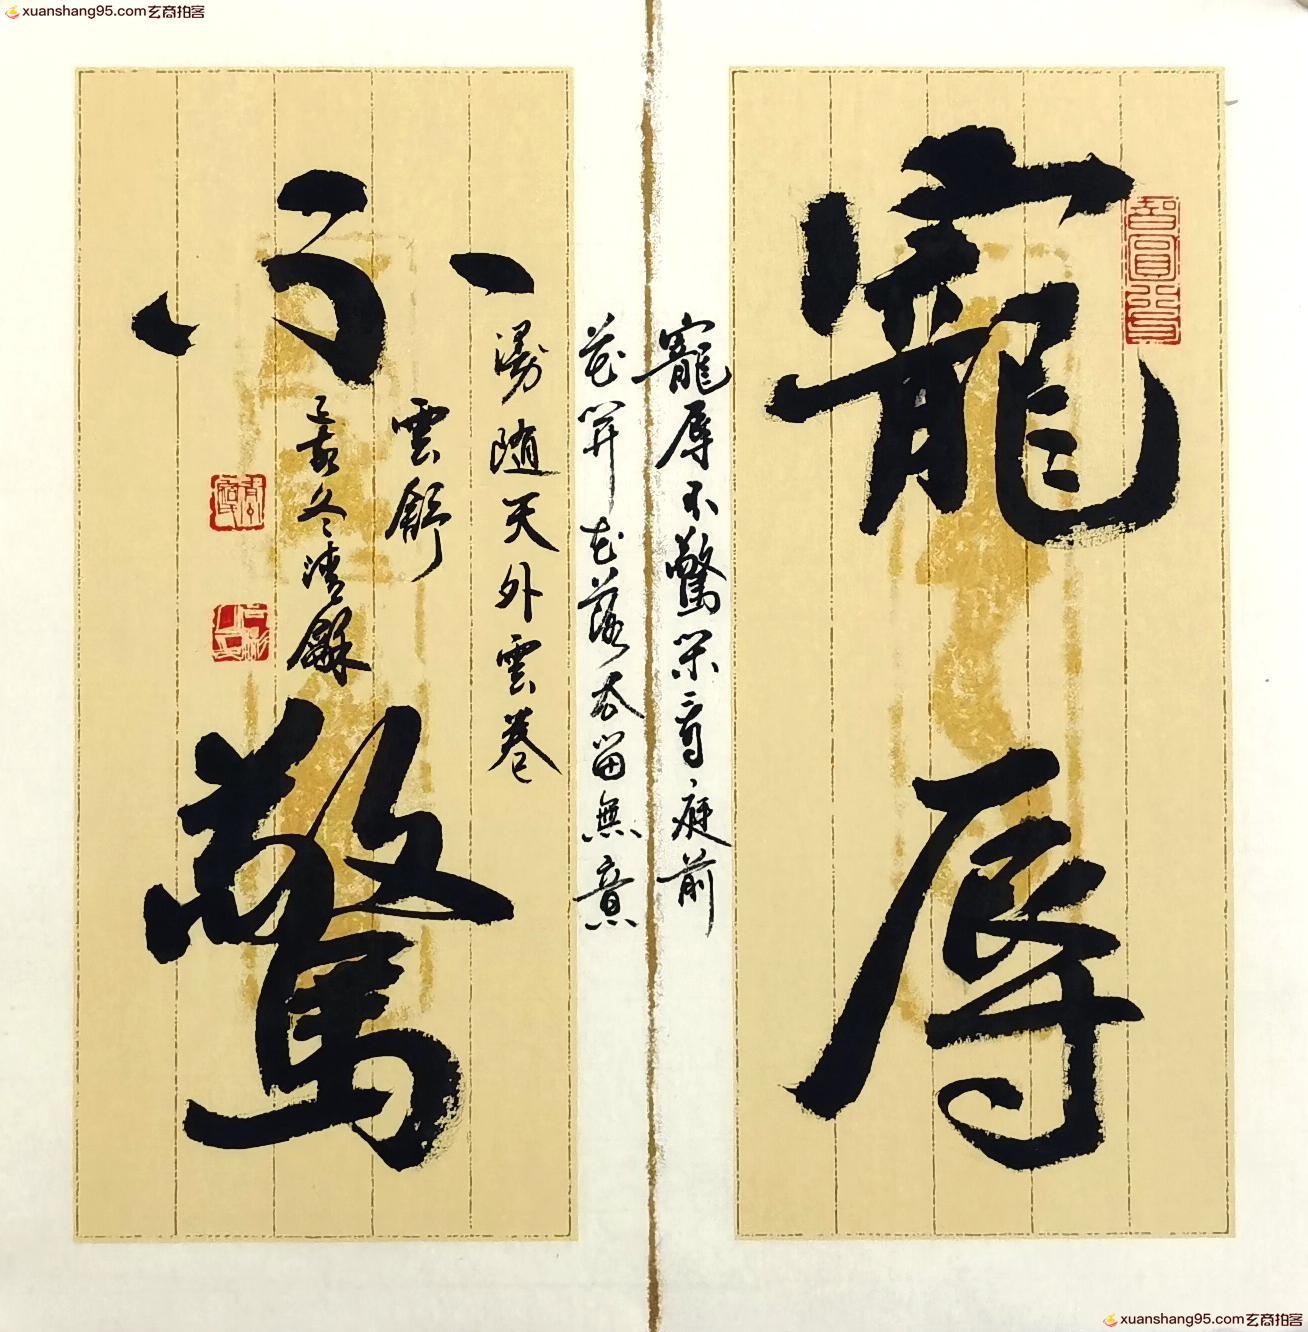 xuanshang95.com玄商拍客
寵辱
不驚
寵辱不驚閑看庭前
花開花落去留無意
漫隨天外雲卷
雲舒
xuanshang95.com玄商拍客